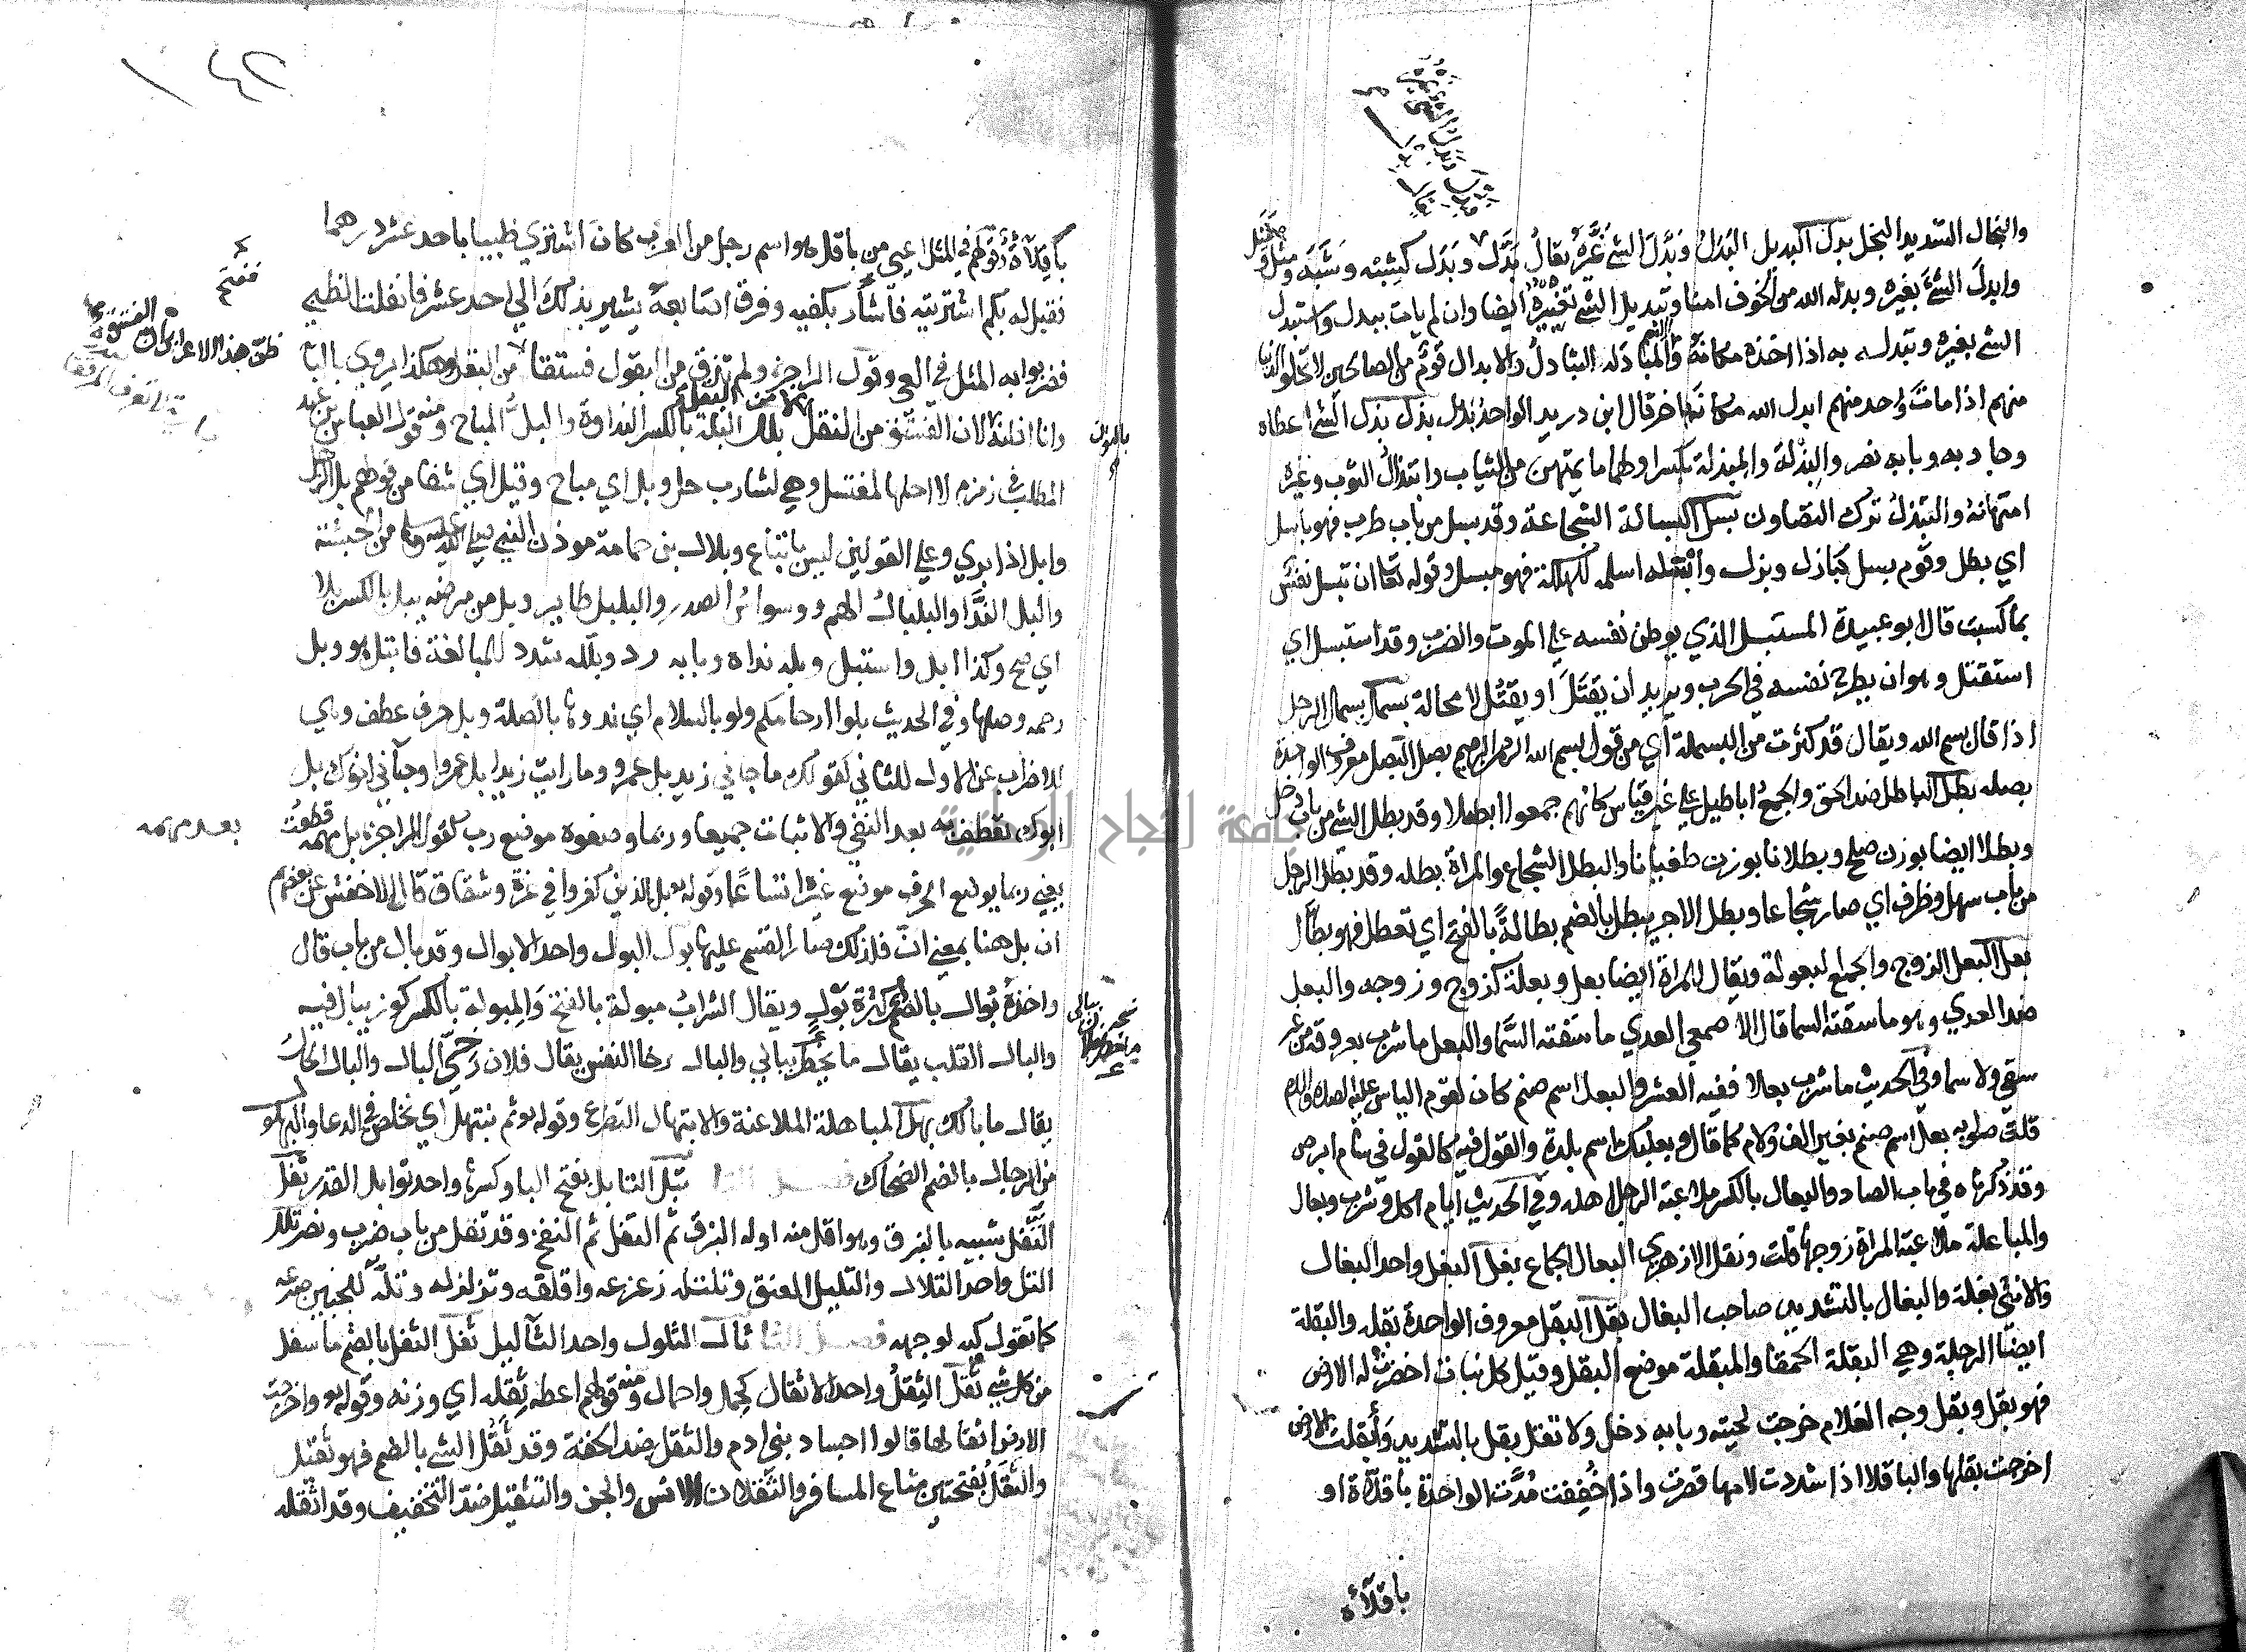 والبجال الشديد البخل بدل البديل البَدَلُ وبَدَّلَ الشيَ غَيَّرَهُ يقالُ بَدَل وبَدَل كشِبْه وشَبَه ومِثْل ومَثَل
وابدلَ الشيَ بغيره وبدله الله من الخوف امنا وتبديل الشي تغييره ايضا وان لم يات ببدل واستبدل
الشي بغيره وتبدله به اذا اخذه مكانه والمبادَله التبادلُ والابدال قومٌ من الصالحين لا تخلو الدنيا
منهم اذا مات واحد منهم ابدل الله مكانَه اخر قال ابن دريد الواحد بديل بذل بذل الشي اعطاه
وجاد به وبابه نصر والبِذْلَة والمبذلة بكسر اولهما ما يمتهن من الثياب وابتذالُ الثوب وغيره
امتهانهُ والتبذلُ ترك التصاون بسل البسالة الشجاعة وقد بسل من باب ظرف فهو باسل
اي بطل وقوم بسل كبازل وبزل وابْسَله اسلمه للهلكة فهو مبسل وقوله تعا ان تبسل نفس
بما كسبت قال ابو عبيدة المستبسل الذي يوطن نفسه على الموت والضرب وقد استبسل اي
استقتل وهو ان يطرح نفسه في الحرب ويريد ان يقتَلَ او يقتُل لا محالة بسمل بسمل الرجل
اذا قال بسم الله ويقال قد كثرت من البسملة اي من قول بسم الله الرحمن الرحيم بصل البصل معروف الواحدة
بصله بطل الباطل ضد الحق والجمعُ اباطيل على غير قياس كانهم جمعوا ابطيلا وقد بطل الشي من باب دخل
وبطلا ايضا بوزن صلح وبطلانا بوزن طغيانا والبطل الشجاع والمراة بطله وقد بطل الرجل
من باب سهل وظرف اي صار شجاعا وبطل الاجير يبطل بالضم بطالةً بالفتح اي تعطل فهو بطّال
بعل البعل الزوج والجمع البعولة ويقال للمراة ايضا بعل وبعلة كزوج وزوجه والبعل
ضد العدي وهو ما سقته السما قال الاصمعي العدي ما سَقته السَّما والبعل ما شرب بعروقه من غير
سقي ولا سما وفي الحديث ما شرب بعلا ففيه العشر والبعل اسم صنم كان لقوم الياس عليه الصلاة والسلام
قلت صوابه بعل اسم صنم بغير الف ولام كما قال وبعلبك اسم بلدة والقول فيه كالقول في سام ابرص
وقد ذكرناه في باب الصاد والبعال بالكسر ملاعبة الرجل اهله وفي الحديث ايام اكل وشرب وبعال
والمباعلة ملاعبة المراة زوجها قلت ونقل الازهري البعال الجماع بغل البغل واحد البغال
والانثي بغلة والبغال بالتشديد صاحب البغال بقل البقل معروف الواحدة بقله والبقلة
ايضًا الرجلة وهي البقلة الحمقا والمبقلة موضع البقل وقيل كل نبات اخضرت له الارض
فهو بقل وبقل وجه الغلام خرجت لحيته وبابه دخل ولا تقل بقل بالتشديد وأبقلت الارض
اخرجت بقلها والباقلا اذا شددت لامها قصرت واذا خُفِفت مُدَّت الواحدة باقلاة او
باقلآءة
باقِلآءةٌ وقولهم في المثل اعيي من باقل هو اسم رجل من العرب كان اشتري ظبيا باحد عشر درهما
فقيل له بكم اشتريته فاشار بكفيه وفرق اصابعهُ يشير بذلك الي احد عشر فانفلت الظبي
فضربوا به المثل في العي وقول الراجز ولم تذق من البقول فستقا من البقل وهكذا يروي بالبا
وانا اظنه لان الفستق من النقل لا من البقل بلل البلة بالكسر النداوة والبلُّ المباح ومنه قول العباس بن عبد
المطلب في زمزم لا احلها لمغتسل وهي لشارب حل وبل اي مباح وقيل اي شفا من قولهم بل الرجل
وابل اذا بري وعلي القولين ليس باتباع وبلال بن حمامة موذن النبي صلى الله عليه وسلم من الحبشة
والبلل النَّدَا والبلبال الهم ووسواس الصدر والبلبل طاير وبل من مرضه يبل بالكسر بلا
اي صح وكذا ابل واستبل وبله نداه وبابه رد وبلله شدد للمبالغة فابتل هو وبل
رحمه وصلها وفي الحديث بلوا ارحامكم ولو بالسلام اي ندوها بالصلة وبل حرف عطف وهي
للاضراب عن الاول للثاني كقولك ما جاني زيد بل عمرو وما رايت زيدا بل عمروا وجآني اخوك بل
ابوك تعطف به بعد النفي والاثبات جميعا وربما وضعوه موضع رب كقول الراجز بل مهمه قطعت بعد مهمه
يعني ربما يوضع الحرف موضع غيره اتساعًا وقوله بل الذين كفروا في عزة وشقاق قال الاخفش عن بعضهم
ان بل هنا بمعني انّ فلذلك صار القسم عليها بول البول واحد الابوال وقد بال من باب قال
واخذهُ بُوال بالضم كثرة بَوْل ويقال الشرابُ مبولة بالفتح والمِبولة بالكسر كوز يبال فيه
والبال القلب يقال ما يخطر ببالي والبال رخا النفس يقال فلان رخيّ البال والبال الحالُ
يقال ما بالك بهل المباهلة الملاعنة والابتهال التضرع وقوله ثم نبتهل اي نخلص في الدعا والبهلول
من الرجال بالضم الضحاك فصل التا تبل التابل بفتح البا وكسرها واحد توابل القدر تفل
التَّفل شبيه بالبزق وهو اقل منه اوله البزق ثم التفل ثم النفخ وقد تفل من باب ضرب ونصر تلل
التل واحد التلال والتليل العنق وتلتله زعزعه واقلقه وتزلزله وتلّه للجبين صرعه
كما تقول كبه لوجهه فصل الثا ثال الثلول واحد الثآليل ثفل الثفل بالضم ما سفل
من كل شي ثقل الثِقلُ واحد الاثقال كحمل واحمال ومنه قولهم اعطه ثِقله اي وزنه وقوله واخرجت
الارض اثقالها قالوا اجساد بني ادم والثقل ضد الخفة وقد ثَقُل الشي بالضم فهو ثقيل
والثَقَلُ بفتحتين متاع المسافر والثَّقَلان الانس والجن والتثقيل ضد التخفيف وقد اثقله
جامعة النجاح الوطنية